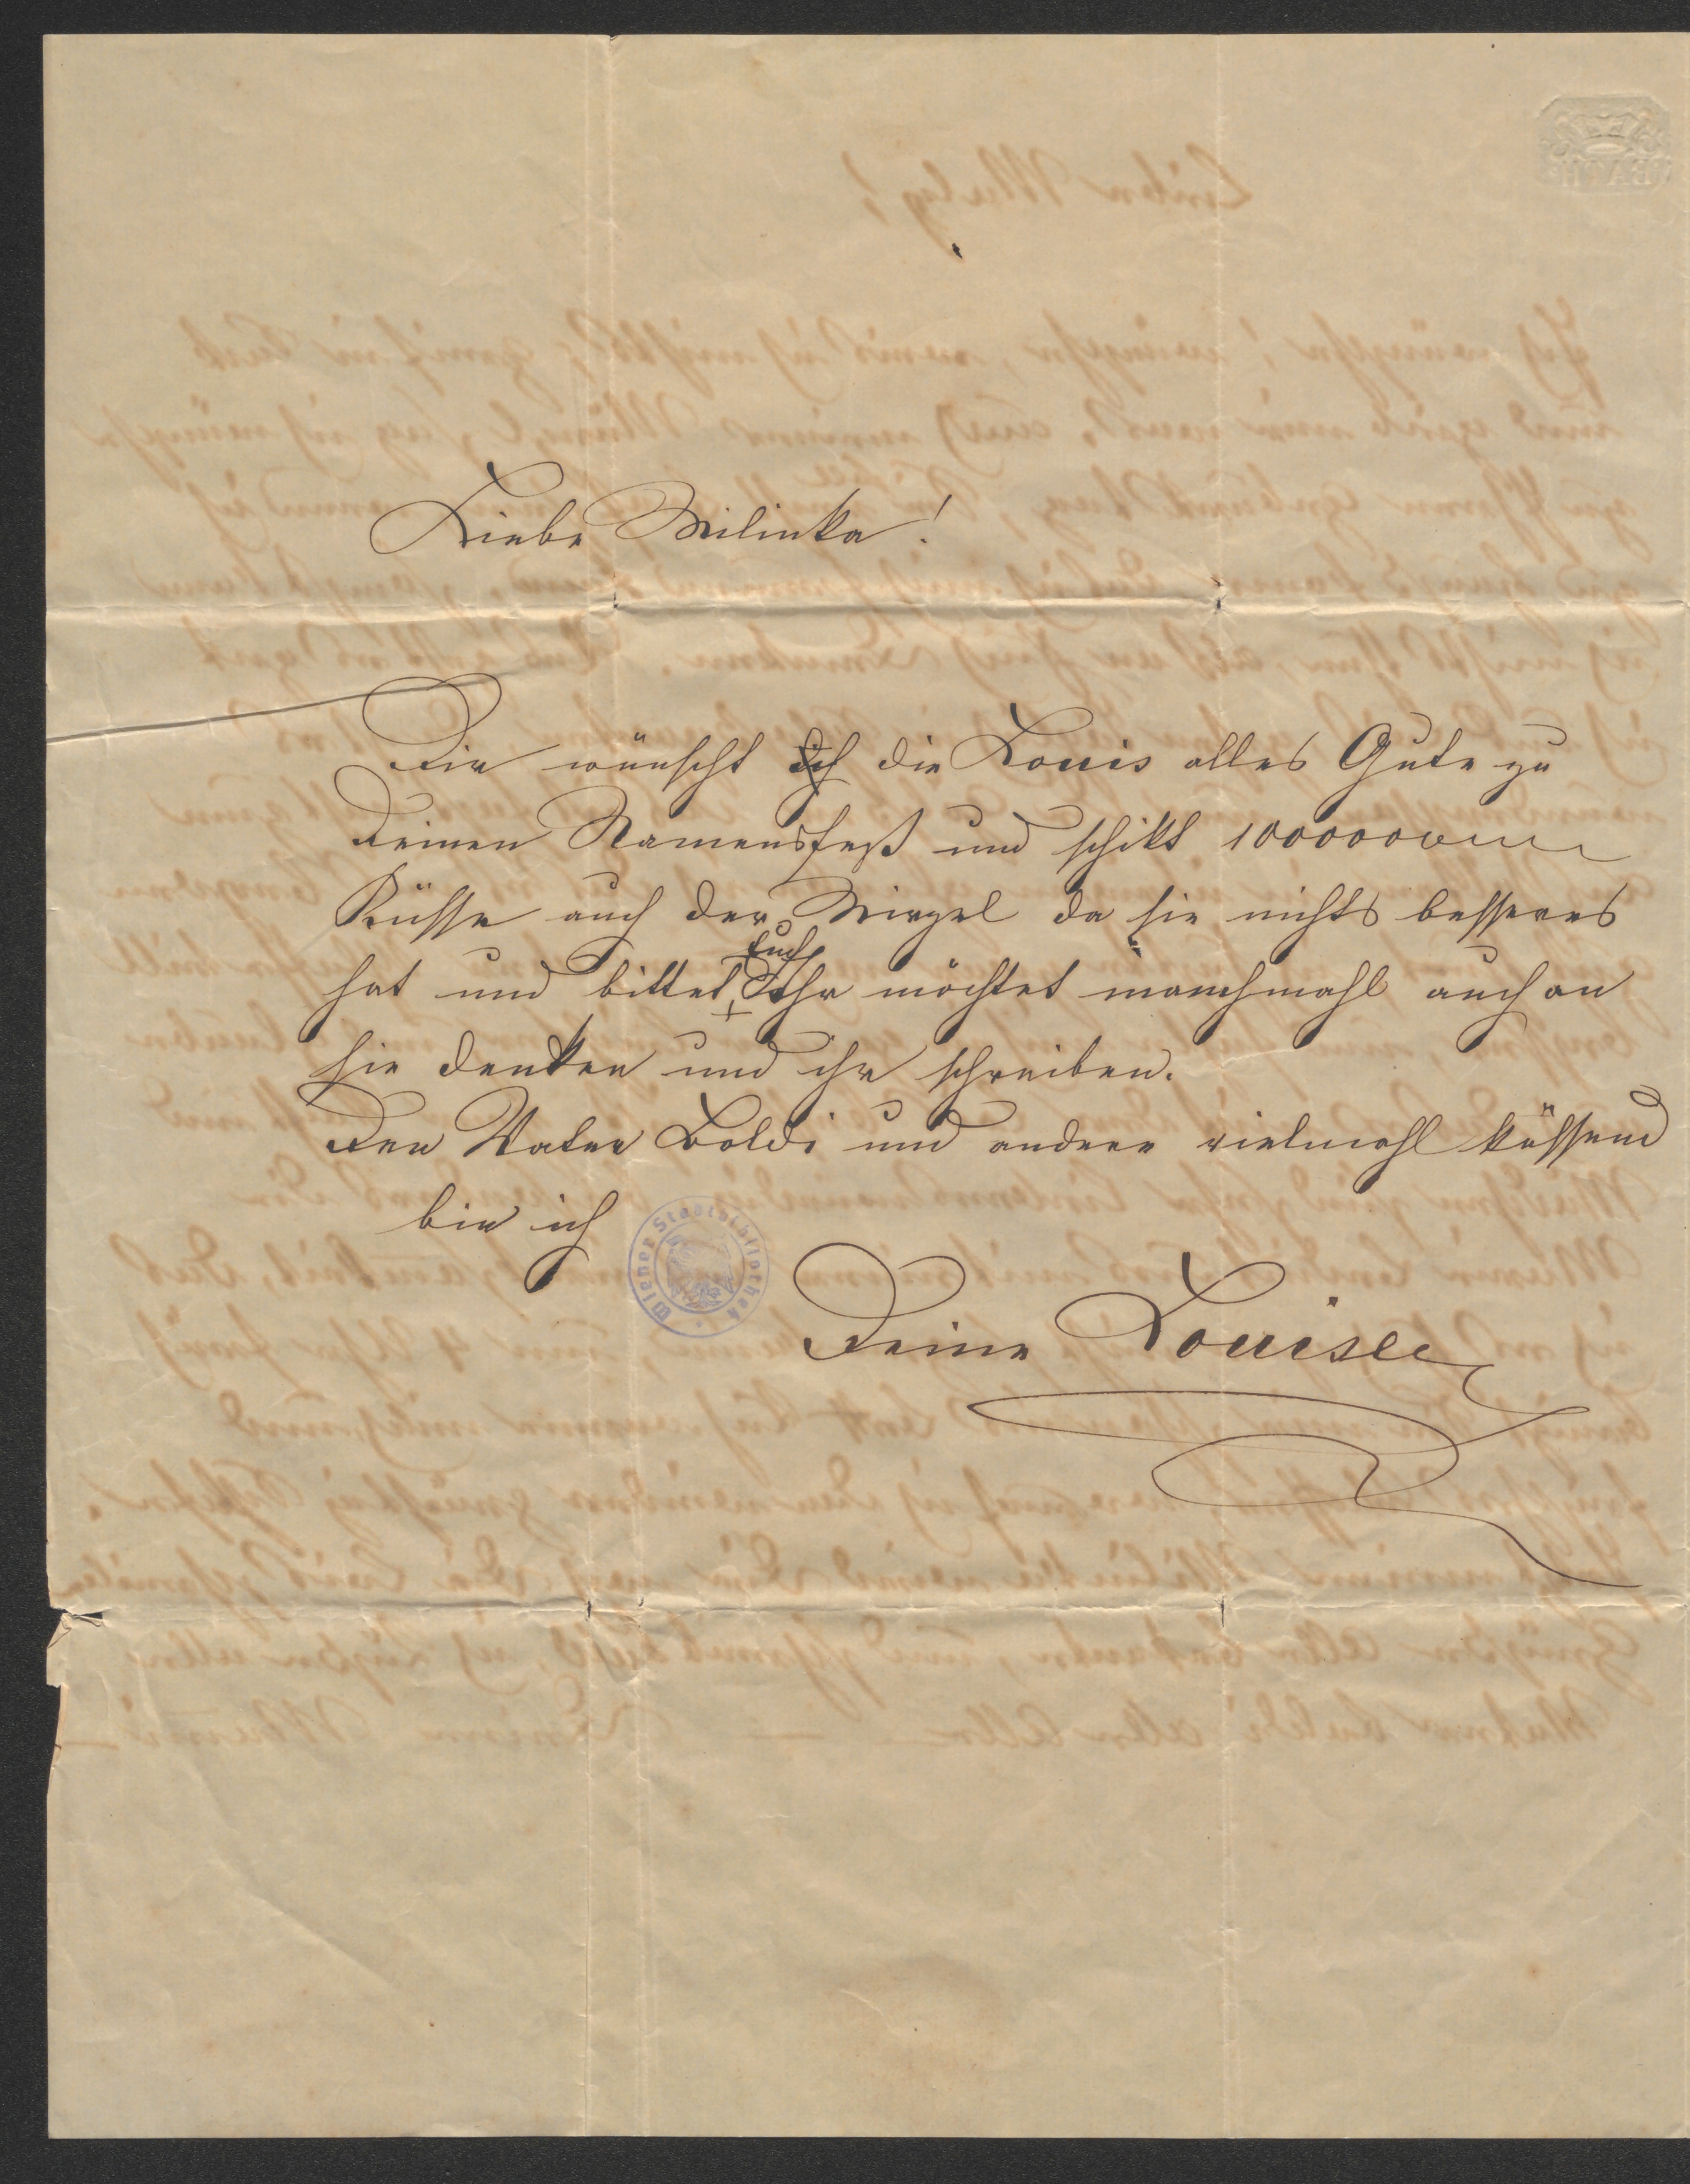 Liebe Milinka!
Dir wünscht ich die Louis alles Gute zu
Deinen Namensfest und schikt 1000000
Küsse auch der Mirzel da sie nichts besseres
hat und bittet Euch Ihr möchtet manchmahl auch an
sie denken und ihr schreiben.
Den Vater Boldi und andere vielmahl küssend
bin ich
Wiener Stadtbibliothek
Deine Louise